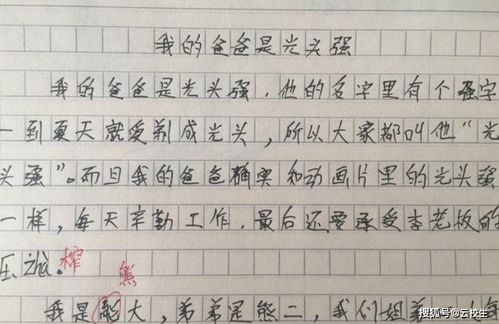 我的爸爸是光头强
我的爸爸是光头强,他的名字里有个强字
一到夏天就爱剃成光头,所以大家都叫他“光
头强”。而且我的爸爸确实和动画片里的光头强
一样,每天辛勤工作,最后还要承受李老板的
压zhà。榨
熊
我是熊大,弟弟是熊二,我们姐弟
搜狐号@云校生